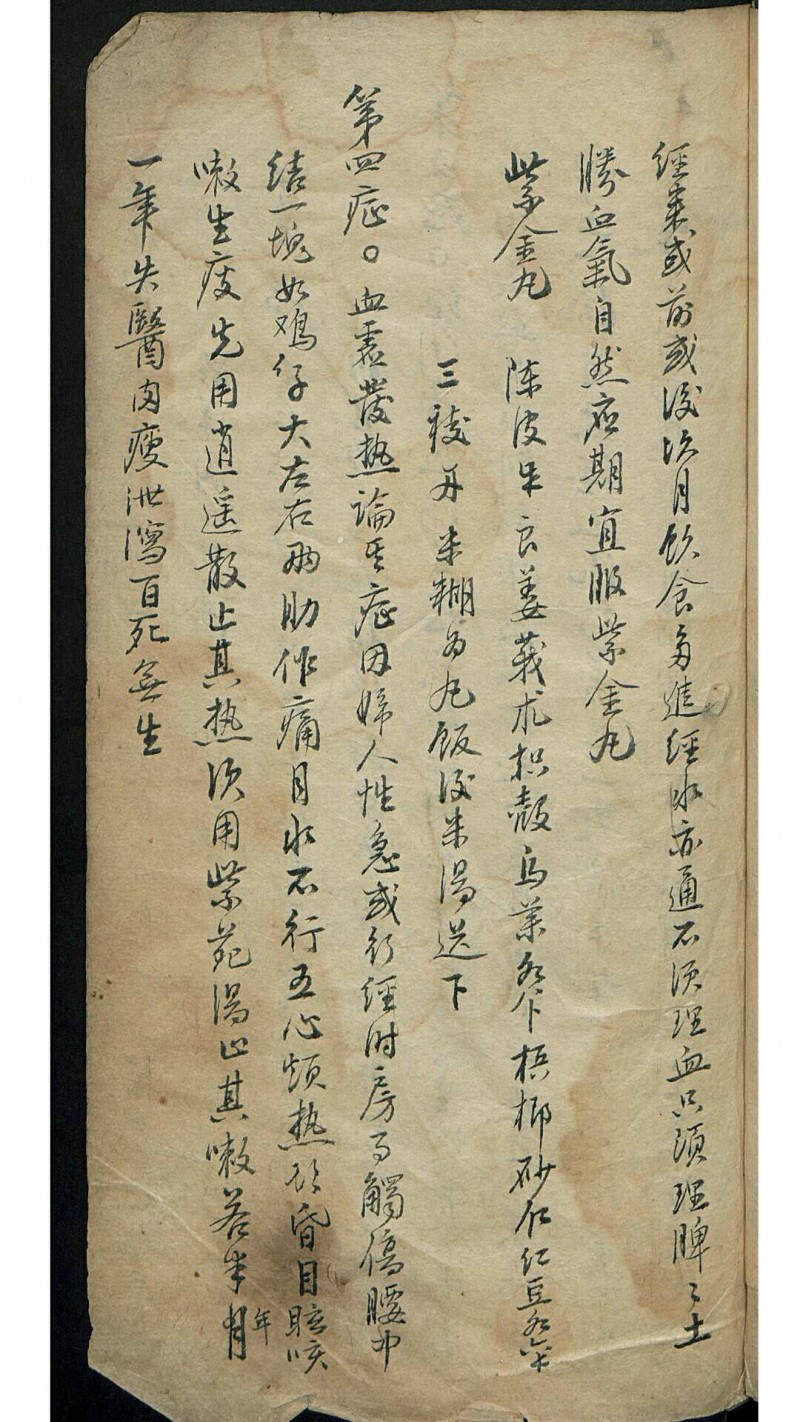 經來或前或後次月飲食多進經水亦通不須理血只須理脾〻土
勝血氣自然應期宜服紫金丸
紫金丸 陈皮 良姜莪朮枳殼烏葉各 梹榔砂仁红豆各
三稜 米糊為丸飯後米湯送下
第四症〇血虛發热論其症因婦人性急或行經时房事觸傷腰中
結一塊如鸡仔大左右两助作痛月水不行五心煩热 昏目眩咳
嗽生痰先用逍遥散止其热次用紫菀湯止其嗽若半年
一年失醫肉瘦泄瀉百死無生